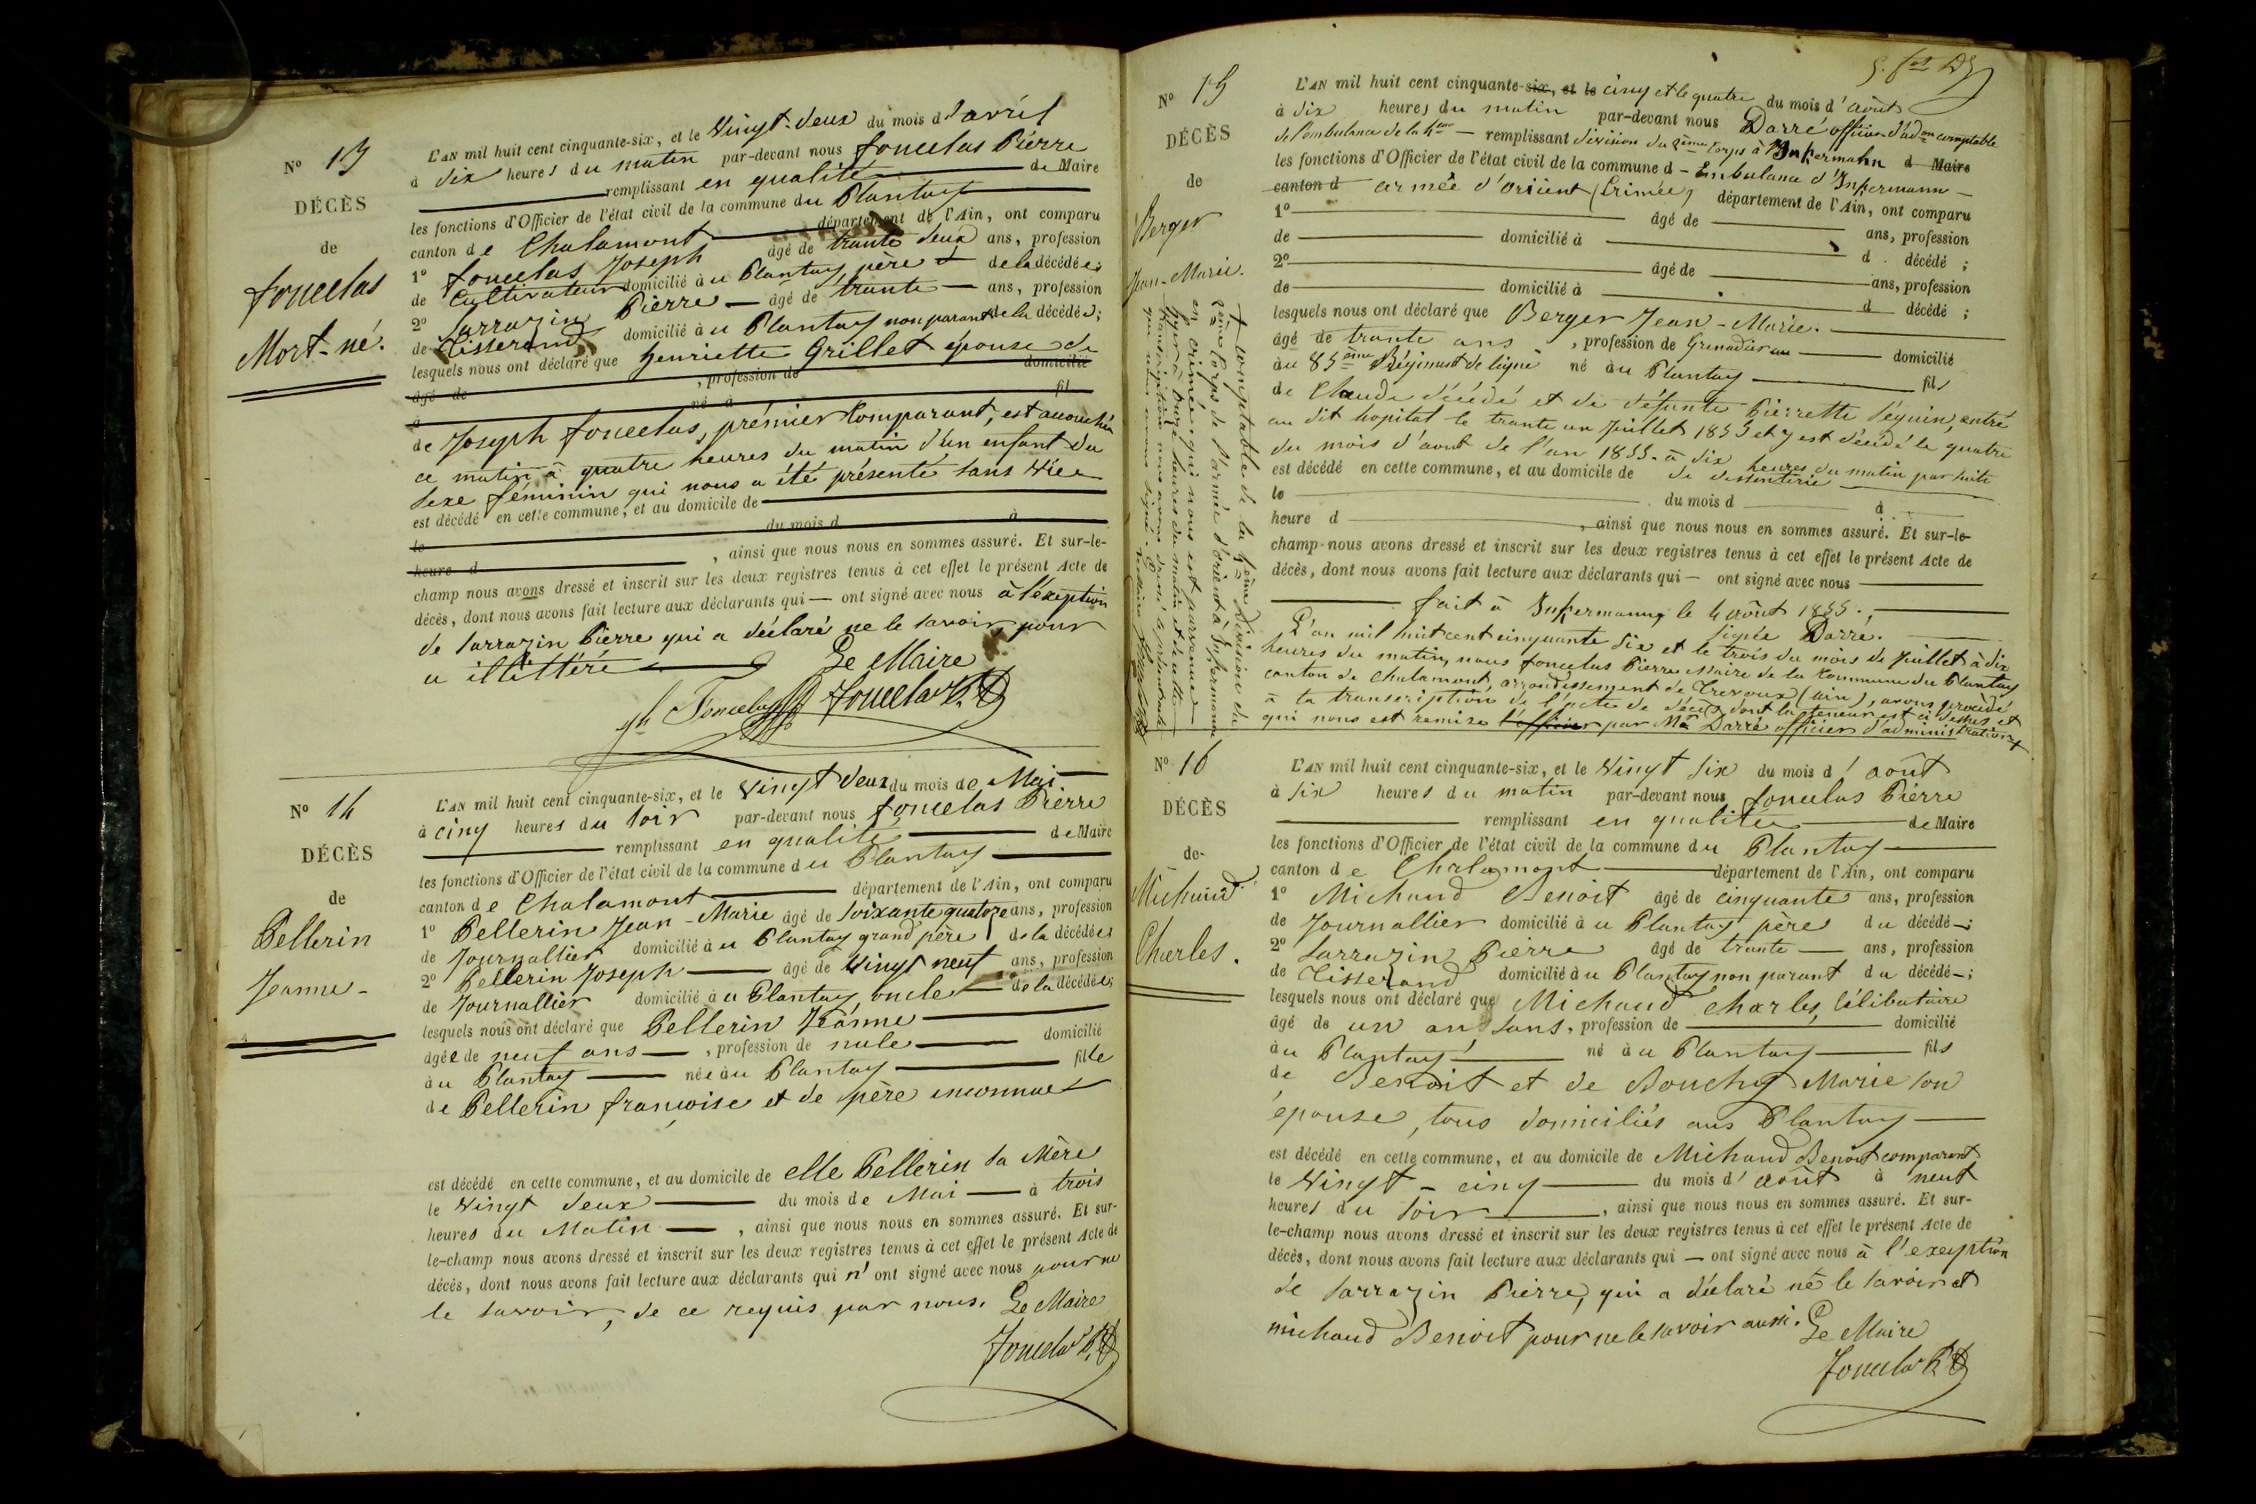 N° 13
DÉCÈS
de
foncelas
Mort-né.
L'AN mil huit cent cinquante-six, et le Vingt-deux du mois d'avril
à dix heures du matin par-devant nous foncelas Pierre
remplissant en qualité de Maire
les fonctions d'Officier de l'état civil de la commune du Plantay
canton de Chalamont département de l'Ain, ont comparu
1° foncelas Joseph âgé de trante deux ans, profession
de Cultivateur domicilié à u Plantay, père de la décédée;
2° Sarrazin Pierre âgé de trante ans, profession
de Tisserand domicilié à u Plantay non parant de la décédée;
lesquels nous ont déclaré que henriette Grillet épouse de
âgé de , profession de domicilié
à né à fil
de Joseph foncelas, prémier Comparant, est accouchée
ce matin à quatre heures du matin d'un enfant du
sexe féminin qui nous a été présenté sans vie
est décédé en cette commune, et au domicile de
le du mois d à
heure d , ainsi que nous nous en sommes assuré. Et sur-le-
champ nous avons dressé et inscrit sur les deux registres tenus à cet effet le présent Acte de
décès, dont nous avons fait lecture aux déclarants qui — ont signé avec nous à l'exeption
de Sarrazin Pierre qui a déclaré ne le savoir pour
u illittéré
Le Maire
jh Foncelas foncelas P.
N° 14
DÉCÈS
de
Pellerin
Jeanne
L'AN mil huit cent cinquante-six, et le Vingt deux du mois de Mai
à cinq heures du soir par-devant nous foncelas Pierre
remplissant en qualité de Maire
les fonctions d'Officier de l'état civil de la commune du Plantay
canton de Chalamont département de l'Ain, ont comparu
1° Pellerin Jean-Marie âgé de soixante quatoze ans, profession
de Journallier domicilié à u Plantay grand père de la décédée;
2° Pellerin Joseph âgé de Vingt neuf ans, profession
de Journallier domicilié à u Plantay, oncle de la décédée;
lesquels nous ont déclaré que Pellerin Jeanne
âgée de neuf ans , profession de nule domicilié
àu Plantay née àu Plantay fille
de Pellerin françoise et de père inconnue
est décédé en cette commune, et au domicile de elle Pellerin sa Mère
le Vingt deux du mois de Mai à trois
heures du Matin , ainsi que nous nous en sommes assuré. Et sur-
le-champ nous avons dressé et inscrit sur les deux registres tenus à cet effet le présent Acte de
décès, dont nous avons fait lecture aux déclarants qui n' ont signé avec nous pour ne
le savoir, de ce requis par nous. Le Maire
foncelas P.
N° 15
DÉCÈS
de
Berger
Jean-Marie.
L'AN mil huit cent cinquante-six, et le cinq et le quatre du mois d'août
à dix heures du matin par-devant nous Darré officier d'adon comptable
de l'embulance de la 4ème remplissant division du 2ème corps à Inkermahn d Maire
les fonctions d'Officier de l'état civil de la commune d - Embulance d'Inkermann
canton d armée d'oriient (Crimée) département de l'Ain, ont comparu
1° âgé de ans, profession
de domicilié à d décédé ;
2° âgé de ans, profession
de domicilié à d décédé ;
lesquels nous ont déclaré que Berger Jean-Marie.
âgé de trante ans , profession de Grenadier au domicilié
àu 85ème Régiment de ligne né àu Plantay fils
de Claude décédé et de défunte Pierrette Séguin, entré
au dit hopital le trante un Juillet 1855 et y est décédé le quatre
du mois d'aout de l'an 1855. à dix heures du matin par suite
est décédé en cette commune, et au domicile de de dessenterie
le du mois d à
heure d , ainsi que nous nous en sommes assuré. Et sur-le-
champ nous avons dressé et inscrit sur les deux registres tenus à cet effet le présent Acte de
décès, dont nous avons fait lecture aux déclarants qui — ont signé avec nous
fait à Inkermann le 4 août 1855.
signée Darré.
L'an mil huit cent cinquante six et le trois du mois de Juillet à dix
heures du matin, nous foncelas Pierre Maire de la Commune du Plantay
canton de Chalamont, arrondissement de Trevoux (ain), avons procédé
à la transcription de l'acte de décès dont la teneur est ci dessus et
qui nous est remise l'officier par Mr Darré officier d'administration
+ comptable de la 4ème division du
2ème corps de l'armée d'orient à Inkermann
en crimée, qui nous est parvenue
N° 16
DÉCÈS
de
Michaud
Charles.
L'AN mil huit cent cinquante-six, et le Vingt six du mois d'août
à six heures du matin par-devant nous foncelas Pierre
remplissant en qualitée de Maire
les fonctions d'Officier de l'état civil de la commune du Plantay
canton de Chalamont département de l'Ain, ont comparu
1° Michaud Benoit âgé de cinquante ans, profession
de Journallier domicilié à u Plantay père du décédé ;
2° Sarrazin Pierre âgé de trante ans, profession
de Tisserand domicilié à u Plantay non parant du décédé ;
lesquels nous ont déclaré que Michaud Charles, Célibataire
âgé de un an sans, profession de domicilié
àu Plantay né àu Plantay fils
de Benoit et de Bouchy Marie son
épouse, tous domiciliés aus Plantay
est décédé en cette commune, et au domicile de Michaud Benoit comparant
le Vingt-cinq du mois d'août à neuf
heures du soir , ainsi que nous nous en sommes assuré. Et sur-
le-champ nous avons dressé et inscrit sur les deux registres tenus à cet effet le présent Acte de
décès, dont nous avons fait lecture aux déclarants qui — ont signé avec nous à l'exeption
de Sarrazin Pierre, qui a déclaré ne le savoir et
michaud Benoit pour ne le savoir aussi. Le Maire
foncelas P.